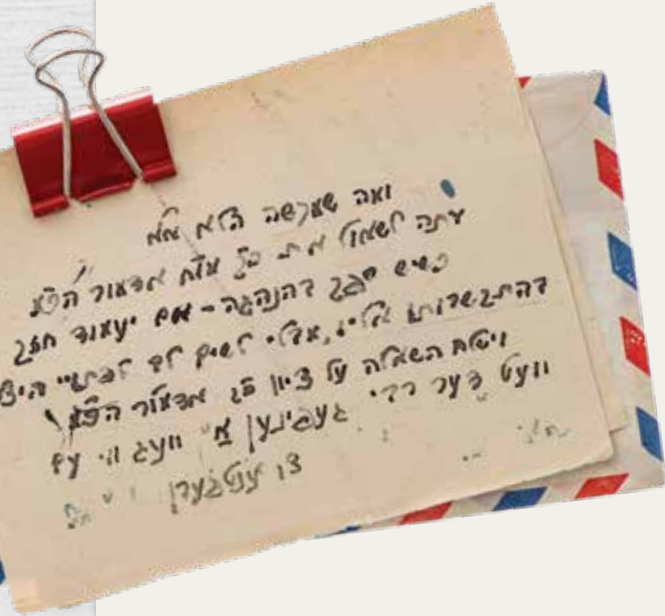 ומה שמקשה הלא א"א
עתה לשאול מאת כ"ק מו"ח אדמו"ר הכ"מ
כשיש ספק בהנהגה - אם יעמוד חזק
בהתקשרותו אליו, מבלי לשים לב לפתויי
וישלח השאלה על ציון כ"ק אדמו"ר הכ"מ
וועט דער רבי געפינען אַ וועג ווי עם
צו ענטפערן